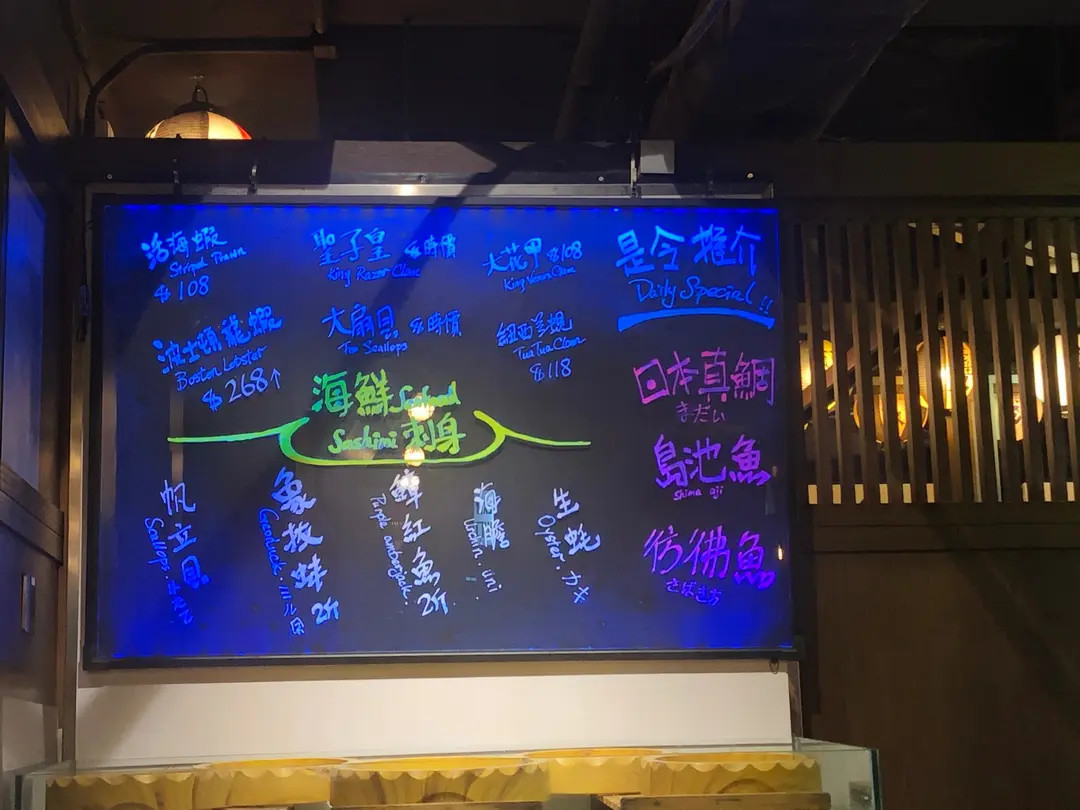 活海蝦
Striped Prawn
$108
聖子皇 $時價
King Razor Clam
大花甲 $108
King Venus Clam
是今推介
Daily Special!!
波士頓龍蝦
Boston Lobster
$268↑
大扇貝 $時價
Scallops
紐西蘭蜆
TuaTua Clam
$118
海鮮 Seafood
Sashimi 刺身
日本真鯛
まだい
島池魚
Shima aji
彷彿魚
帆立貝
Scallops.
象拔蚌 2斤
Geoduck. ミル貝
魚 2斤
amberjack.
海膽
Urchin. uni
生蚝
Oyster. カキ